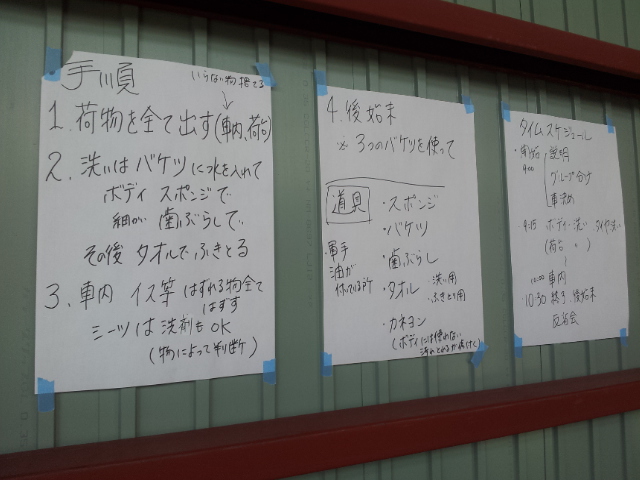 手順
いらない物捨てる
1. 荷物を全て出す(車内、荷台)
2. 洗いはバケツに水を入れて
ボディ スポンジで
細かい 歯ぶらしで
その後 タオルでふきとる
3. 車内 イス等 はずれる物全て
はずす
シーツは洗剤もOK
(物によって判断)
4. 後始末
※ 3つのバケツを使って
道具
・スポンジ
・バケツ
・歯ぶらし
・タオル 洗い用
ふきとり用
・カネヨン
(ボディには使わない
・軍手
油が
タイムスケジュール
・開始 説明
グループ分け
車決め
ボディ洗い タイヤ洗い
(荷台 〃 )
車内
・10:30 終了、後始末
反省会